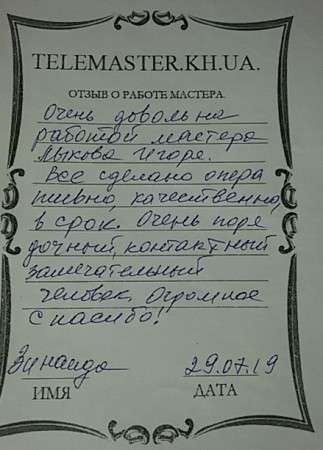 TELEMASTER.KH.UA.
ОТЗЫВ О РАБОТЕ МАСТЕРА.
Очень довольна
работой мастера
Лыкова Игоря.
Все сделано опера
тивно, качественно,
в срок. Очень поря
дочный, контактный
замечательный
человек. Огромное
спасибо!
Зинаида 29.07.19
ИМЯ ДАТА